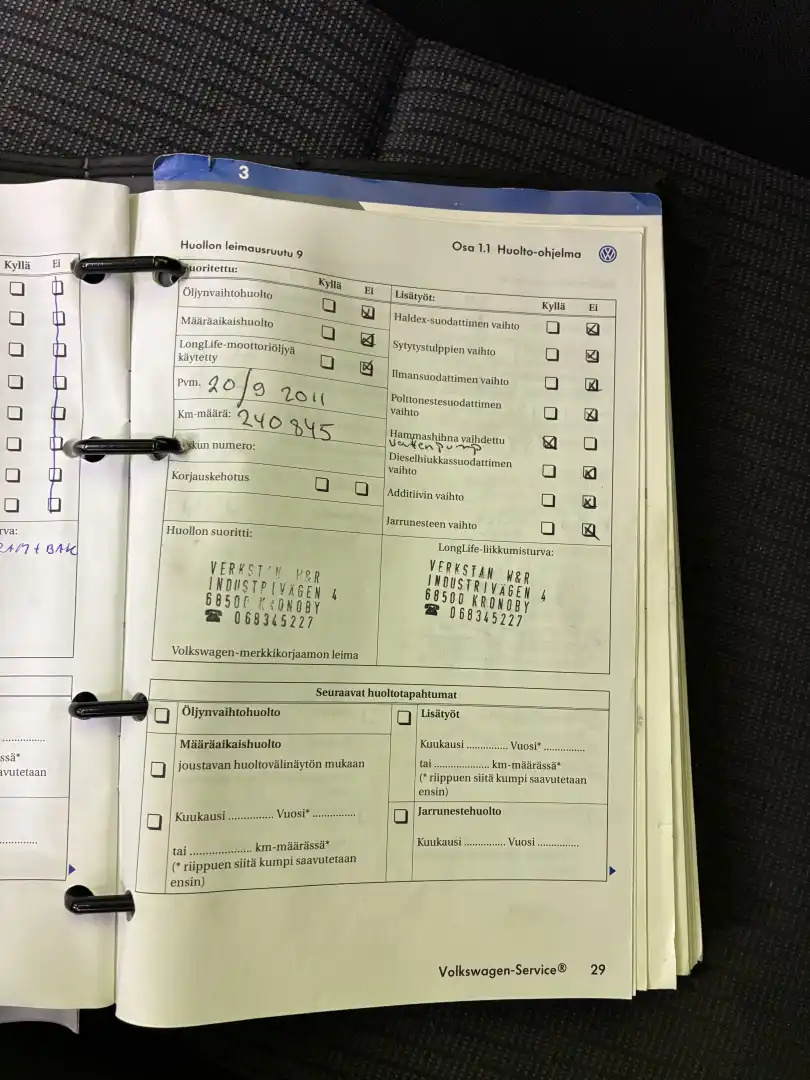 3
Kyllä Ei
rva:
RAM + BAK
ssä*
avutetaan
Huollon leimausruutu 9
Osa 1.1 Huolto-ohjelma
uoritettu:
Kyllä Ei
Öljynvaihtohuolto
Määräaikaishuolto
LongLife-moottoriöljyä
käytetty
Pvm. 20/9 2011
Km-määrä: 240 845
skun numero:
Korjauskehotus
Huollon suoritti:
VERKSTAN W&R
INDUSTRIVÄGEN 4
68500 KRONOBY
☎ 068345227
Volkswagen-merkkikorjaamon leima
Lisätyöt:
Kyllä Ei
Haldex-suodattimen vaihto
Sytytystulppien vaihto
Ilmansuodattimen vaihto
Polttonestesuodattimen
vaihto
Hammashihna vaihdettu
vattenpump
Dieselhiukkassuodattimen
vaihto
Additiivin vaihto
Jarrunesteen vaihto
LongLife-liikkumisturva:
VERKSTAN W&R
INDUSTRIVÄGEN 4
68500 KRONOBY
☎ 068345227
Seuraavat huoltotapahtumat
Öljynvaihtohuolto
Määräaikaishuolto
joustavan huoltovälinäytön mukaan
Kuukausi .............. Vuosi* ..............
tai .................... km-määrässä*
(* riippuen siitä kumpi saavutetaan
ensin)
Lisätyöt
Kuukausi .............. Vuosi* ..............
tai .................... km-määrässä*
(* riippuen siitä kumpi saavutetaan
ensin)
Jarrunestehuolto
Kuukausi .............. Vuosi ..............
Volkswagen-Service® 29